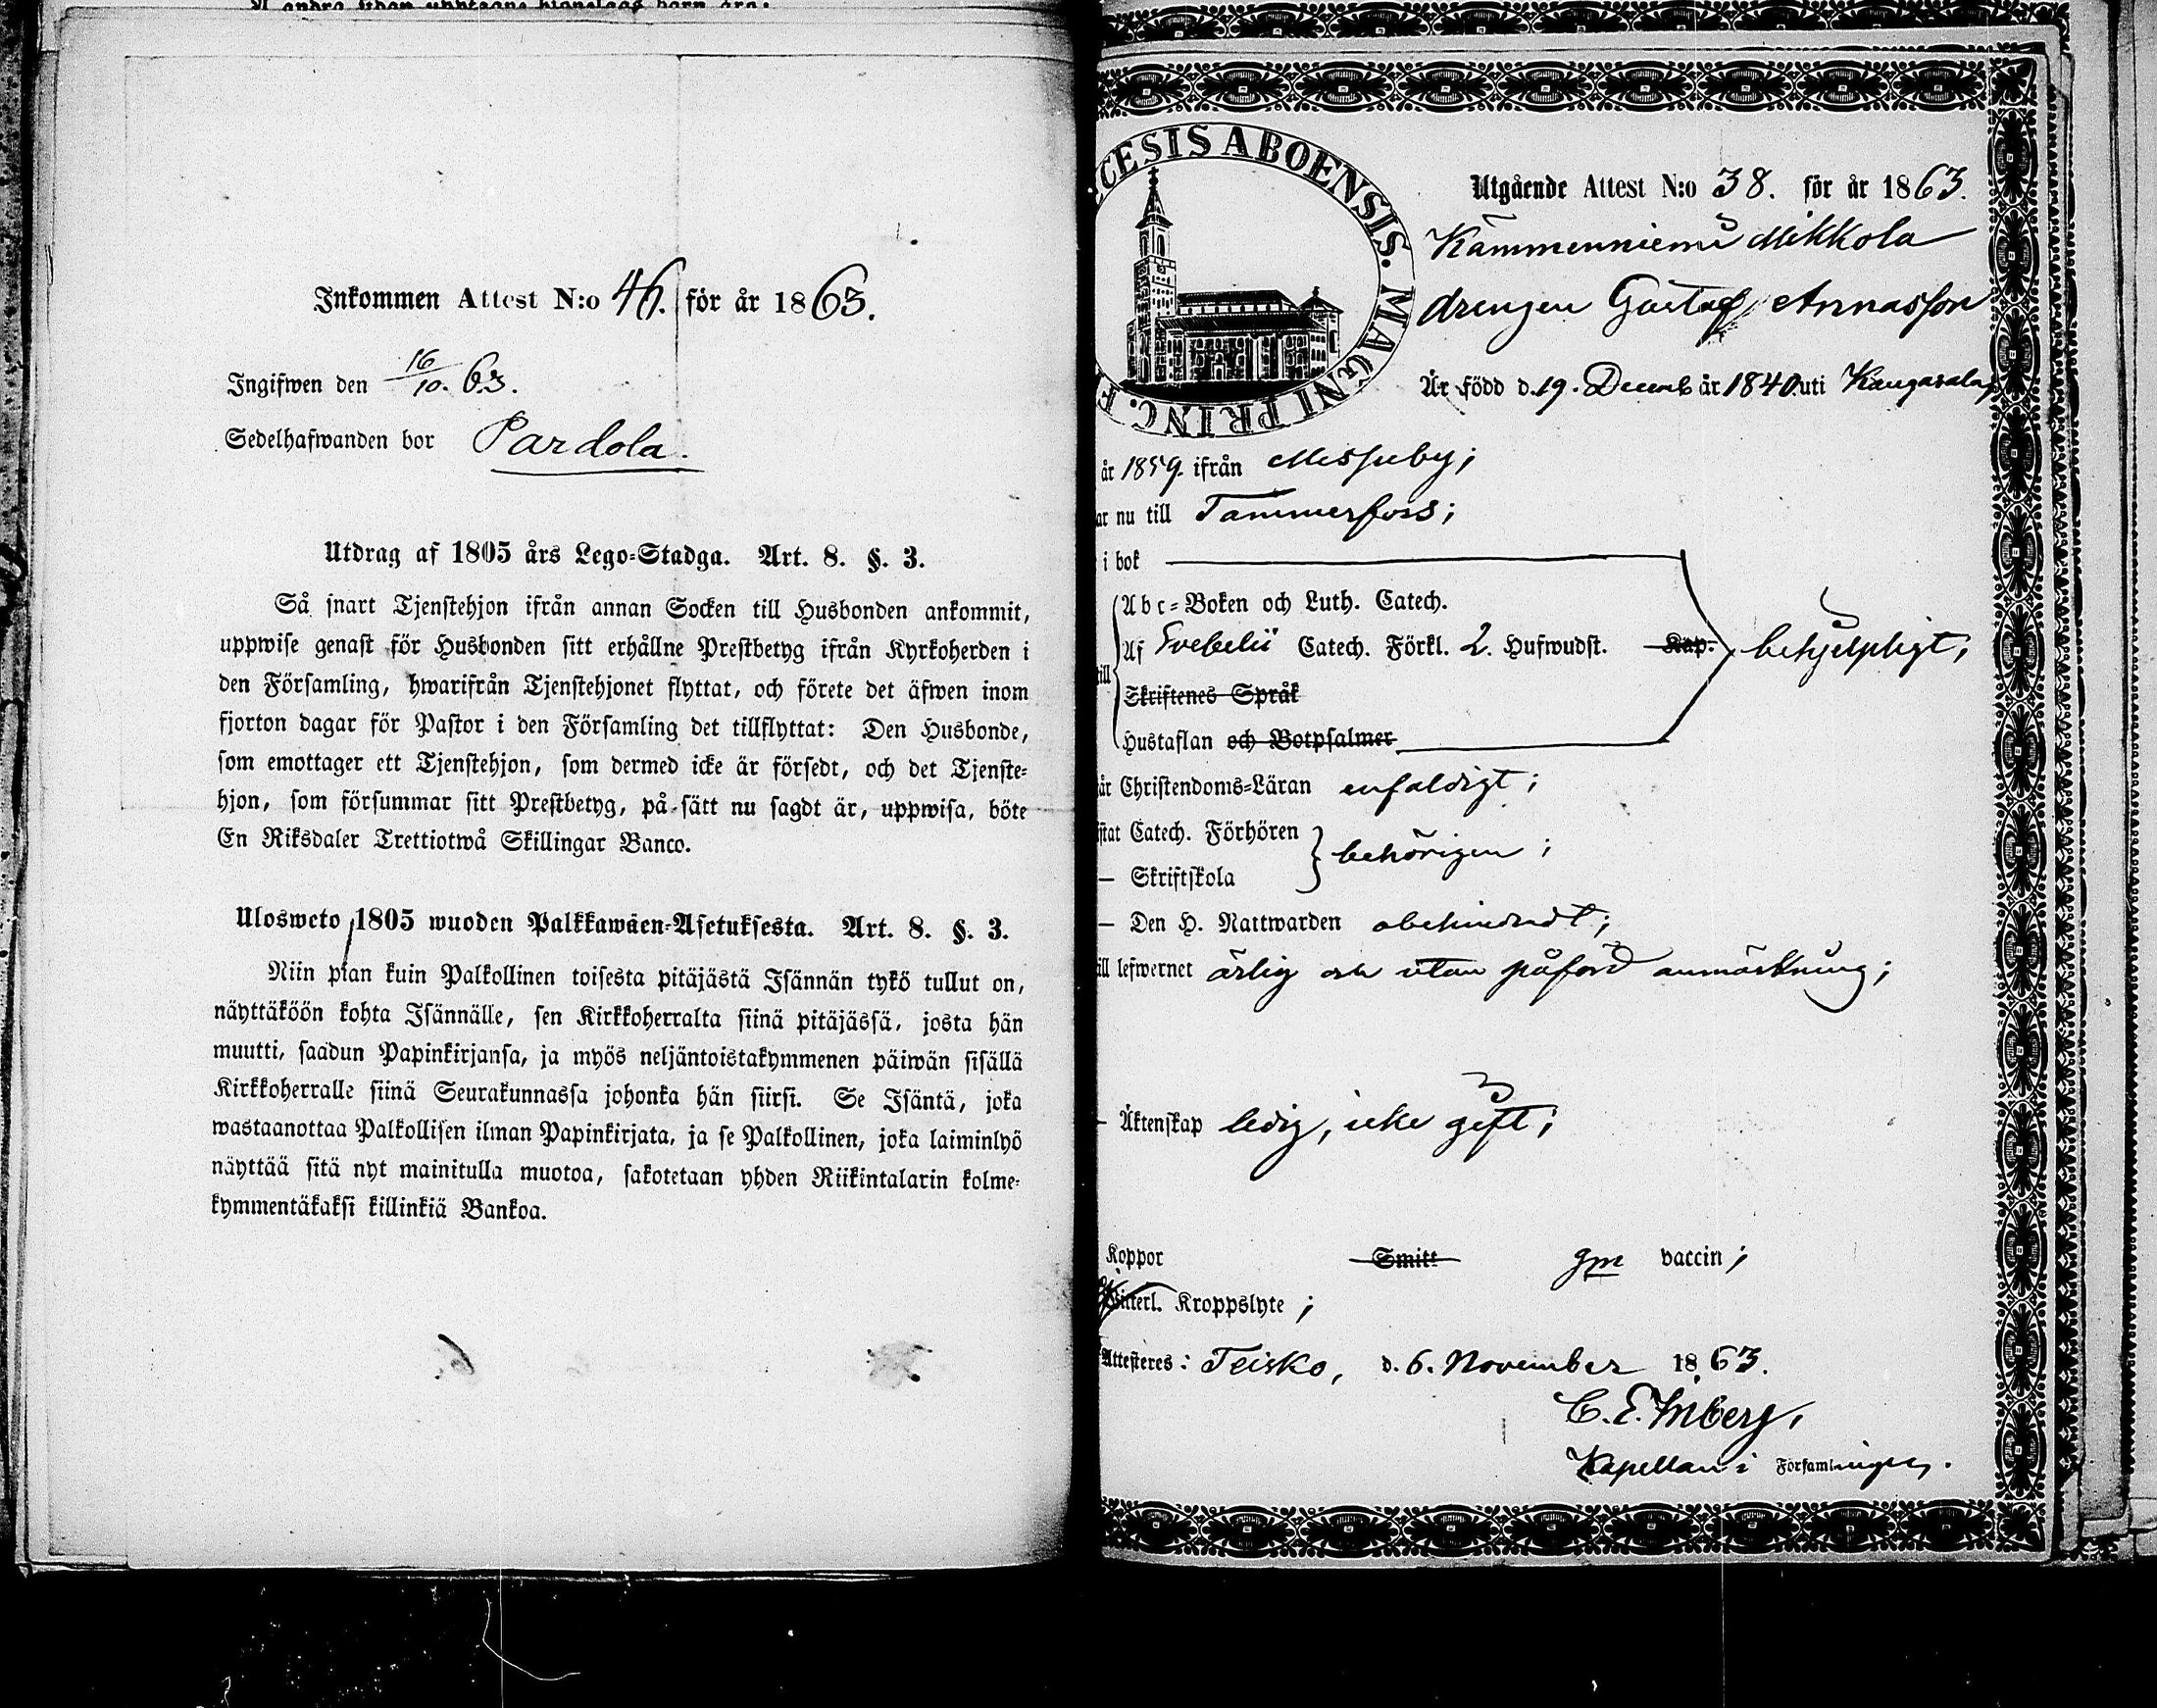 Inkommen Attest N:o 46. för år 1863.
Ingifwen den 16/10. 63.
Sedelhafwanden bor Pardola.
Utdrag af 1805 års Lego-Stadga. Art. 8. §. 3.
Så snart Tjenstehjon ifrån annan Socken till Husbonden ankommit,
uppwise genast för Husbonden sitt erhållne Prestbetyg ifrån Kyrkoherden i
den Församling, hwarifrån Tjenstehjonet flyttat, och förete det äfwen inom
fjorton dagar för Pastor i den Församling det tillflyttat: Den Husbonde,
som emottager ett Tjenstehjon, som dermed icke är försedt, och det Tjenste-
hjon, som försummar sitt Prestbetyg, på sätt nu sagdt är, uppwisa, böte
En Riksdaler Trettiotwå Skillingar Banco.
Ulosweto 1805 wuoden Palkkawäen-Asetuksesta. Art. 8. §. 3.
Niin pian kuin Palkollinen toisesta pitäjästä Isännän tykö tullut on,
näyttäköön kohta Isännälle, sen Kirkkoherralta siinä pitäjässä, josta hän
muutti, saadun Papinkirjansa, ja myös neljäntoistakymmenen päiwän sisällä
Kirkkoherralle siinä Seurakunnassa johonka hän siirsi. Se Isäntä, joka
wastaanottaa Palkollisen ilman Papinkirjata, ja se Palkollinen, joka laiminlyö
näyttää sitä nyt mainitulla muotoa, sakotetaan yhden Riikintalarin kolme-
kymmentäkaksi killinkiä Bankoa.
CESIS ABOENSIS. MAGNI PRINC. F
Utgående Attest N:o 38. för år 1863.
Kämmenniemi Mikkola
drengen Gustaf Annasson
Är född d. 19. Decemb år 1840 uti Kangasala,
år 1859. ifrån Messuby;
ar nu till Tammerfors;
i bok
Abc-Boken och Luth. Catech.
Af Svebelii Catech. Förkl. 2. Hufwudst. Kap. behjelpligt;
till
Skriftenes Språk
Hustaflan och Botpsalmer
år Christendoms-Läran enfaldigt;
istat Catech. Förhören
behörigen;
— Skriftskola
— Den H. Nattwarden obehindradt;
ill lefwernet ärlig och utan påförd anmärkning;
— Äktenskap ledig, icke gift;
Koppor Smitt gm vaccin;
Witterl. Kroppslyte;
Attesteres: Teisko, d. 6. November 1863.
C. E. Inberg,
Kapellan i Församlingen.